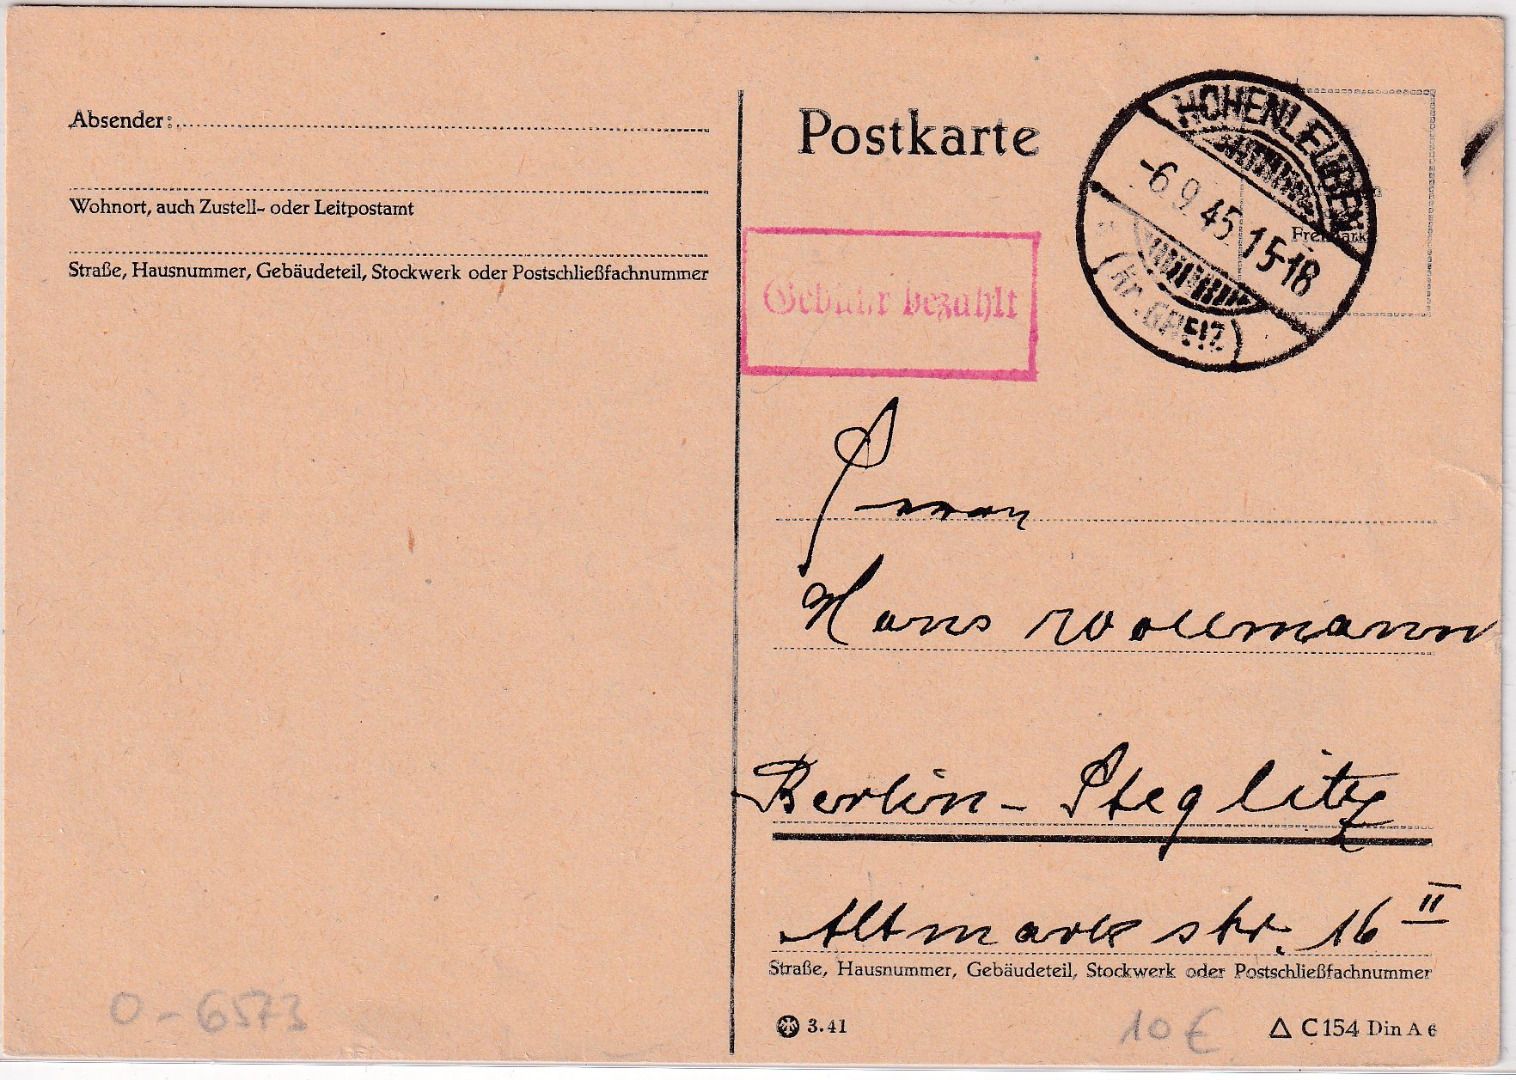 Absender:
Wohnort, auch Zustell- oder Leitpostamt
Straße, Hausnummer, Gebäudeteil, Stockwerk oder Postschließfachnummer
Postkarte
HOHENLEUBEN
-6.9.45.15-18
(Kr. GREIZ)
Gebühr bezahlt
Hans Wollmann
Berlin-Steglitz
Altmarkstr. 16 II
Straße, Hausnummer, Gebäudeteil, Stockwerk oder Postschließfachnummer
3.41
C 154 Din A 6
0-6573
10 €